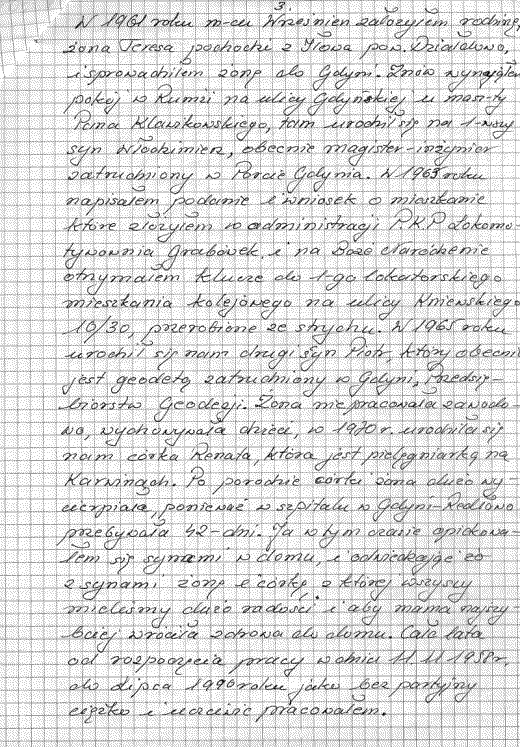 3.
W 1961 roku m-cu Wrzesnien założyłem rodzinę,
żona Teresa pochodzi z Iłowa pow. Działdowo,
i sprowadziłem żonę do Gdyni. Znów wynająłem
pokój w Rumii na ulicy Gdyńskiej u
Pana Klawikowskiego, tam urodził się na 1-wszy
syn Włodzimierz, obecnie magister-inżynier
zatrudniony w Porcie Gdynia. W 1963 roku
napisałem podanie i wniosek o mieszkanie
które złożyłem w administracji P.K.P Lokomo-
tywownia Grabówek, i na Boże Narodzenie
otrzymałem klucze do 1-go lokatorskiego
mieszkania kolejowego na ulicy Kniewskiego
10/30, przerobione ze strychu. W 1965 roku
urodził się nam drugi syn Piotr, który obecnie
jest geodetą zatrudniony w Gdyni, Przedsię-
biorstw Geodezji. Żona nie pracowała zawodo-
wo, wychowywała dzieci, w 1970 r. urodziła się
nam córka Renata, która jest pielęgniarką na
Karwinach. Po porodzie córki żona dużo wy-
cierpiała, ponieważ w szpitalu w Gdyni-Redłowo
przebywała 42-dni. Ja w tym czasie opiekowa-
łem się synami w domu, i odwiedzając co
z synami żonę i córkę z której wszyscy
mieliśmy dużo radości i aby mama najszy-
bciej wróciła zdrowa do domu. Cała lata
od rozpoczęcia pracy w dniu 11 11 1958r,
do lipca 1990 roku jako bez partyjny
ciężko i uczciwie pracowałem.